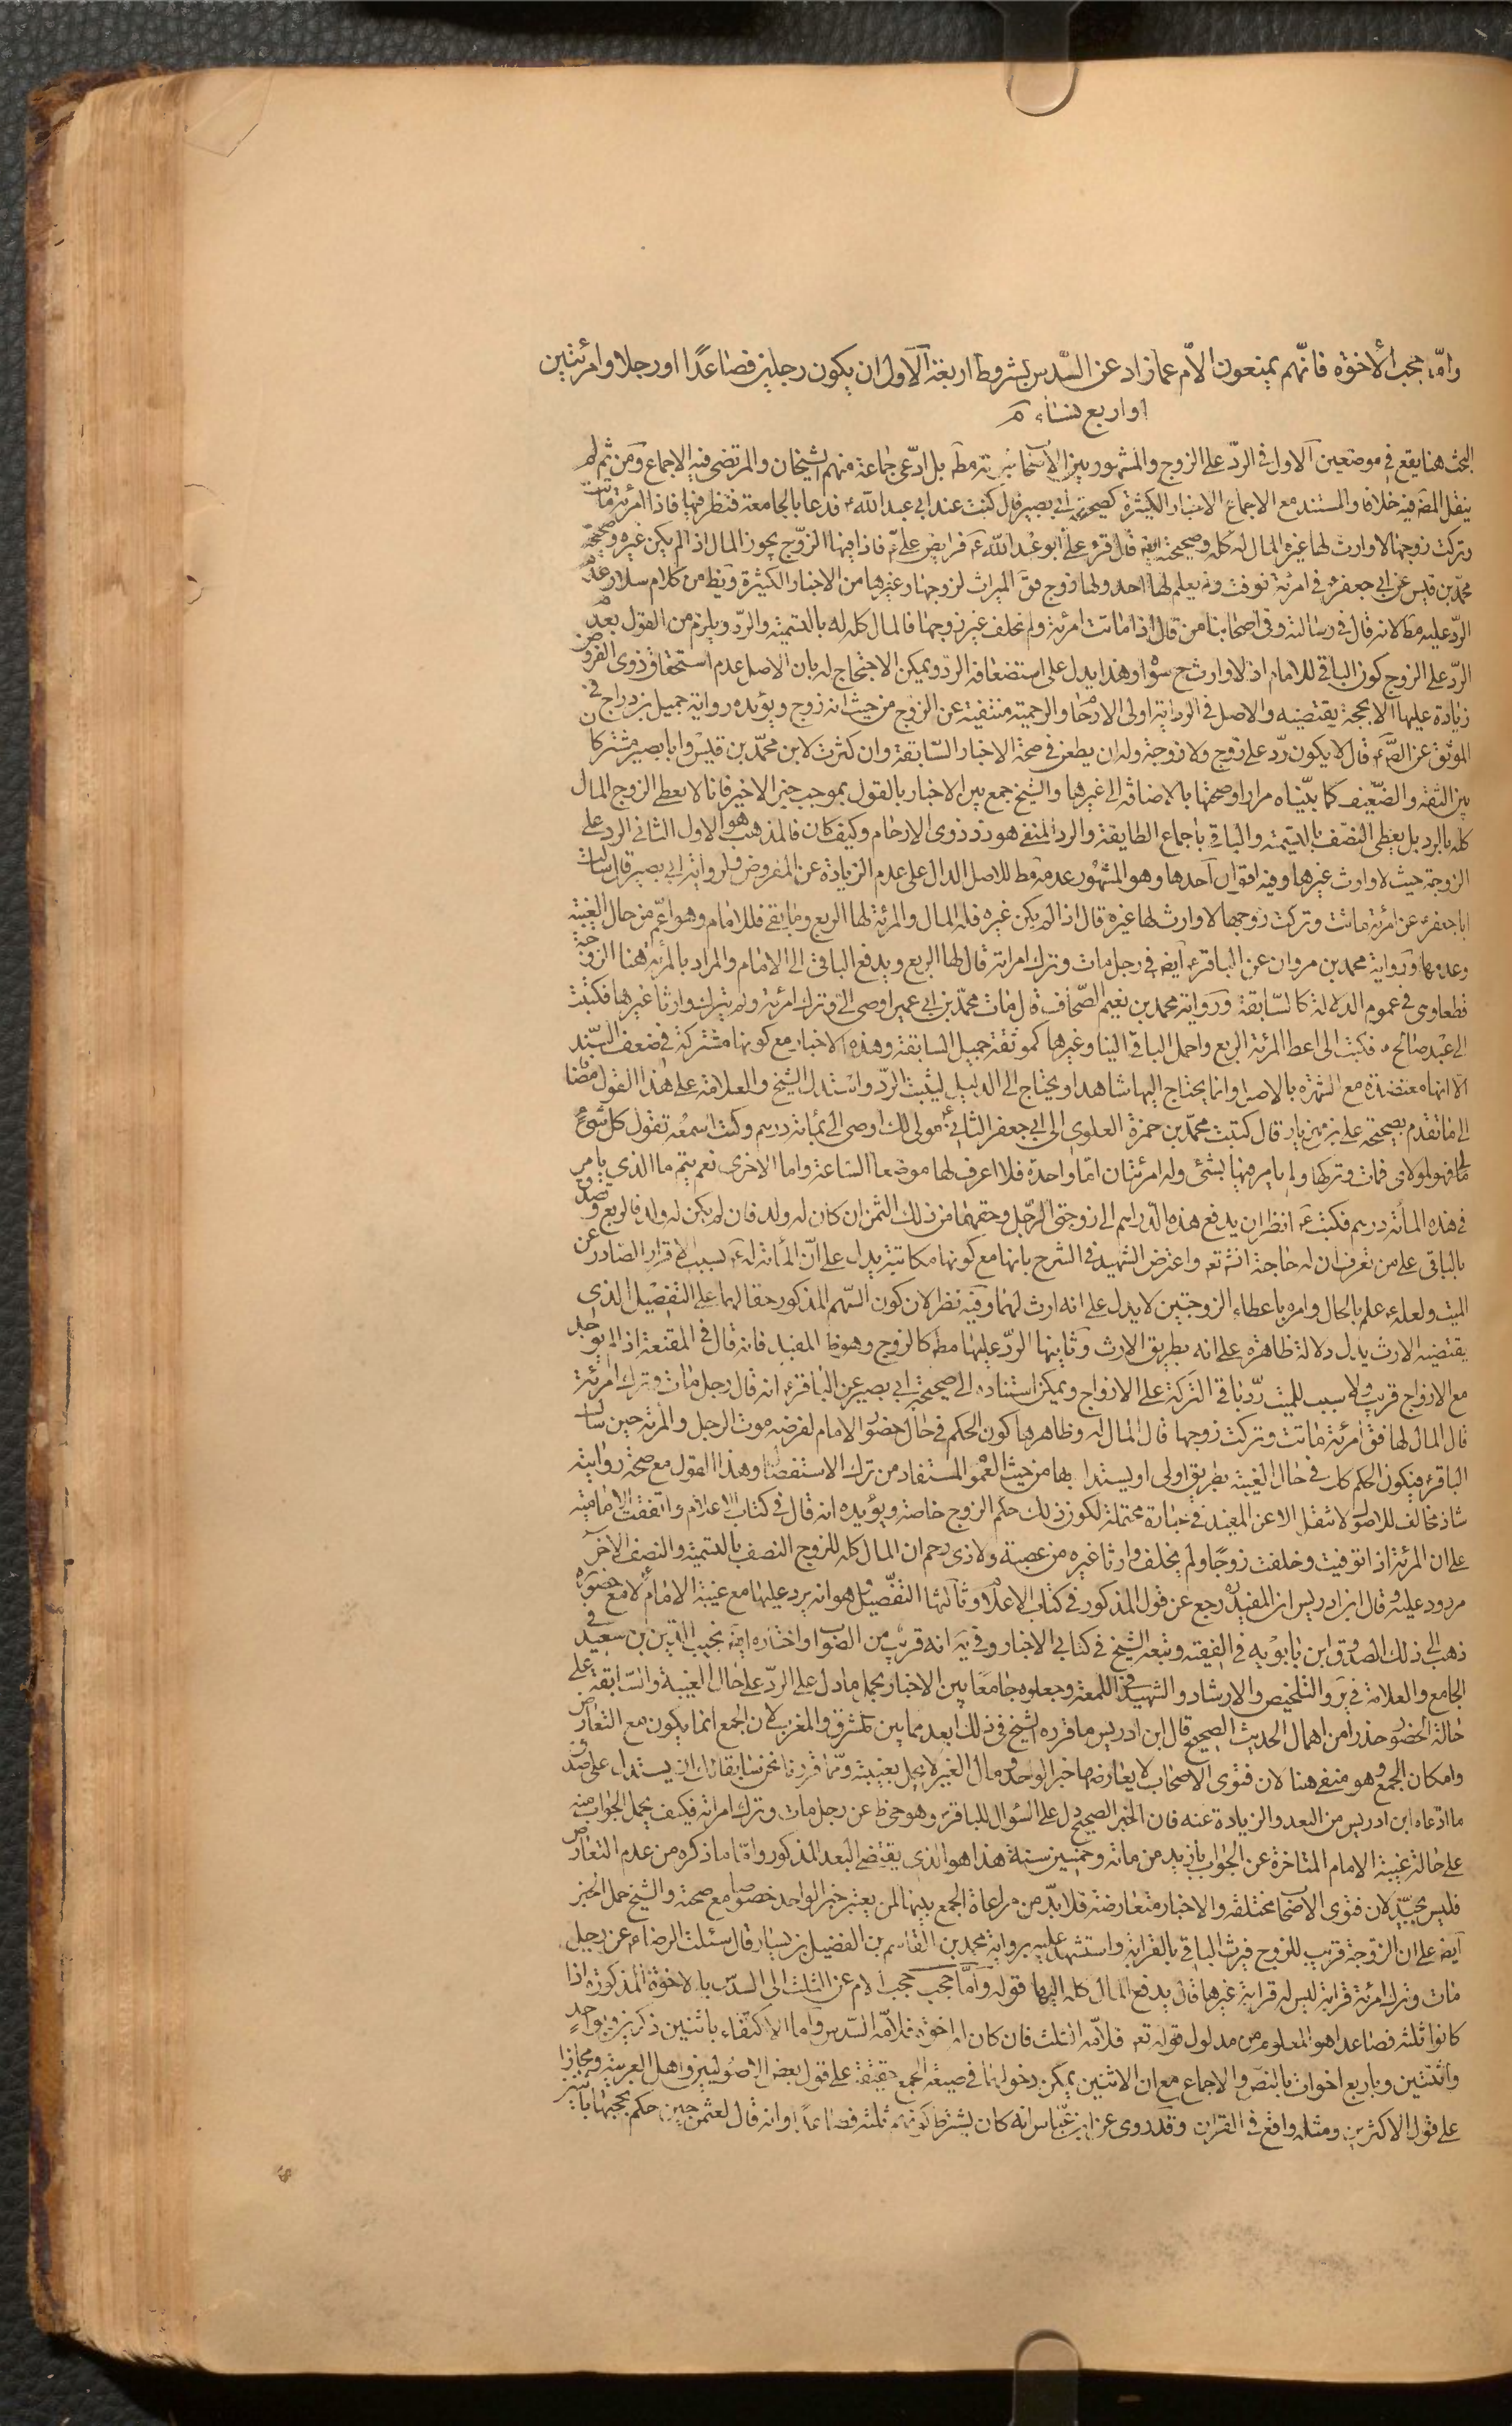 وامّا حجب الأخوة فانّهم يمنعون الأم عما زاد عن السّدس بشروط اربعة الاول ان يكون رجلين فصاعدًا او رجلا وامرئتين
او اربع نساء
البحث هنا يقع في موضعين الاول في الردّ على الزوج والمشهور بين الاصحاب ثبوته مط بل ادّعى جماعة منهم الشيخان والمرتضى فيه الاجماع ومن ثم لم
ينقل المص فيه خلافا والمستند مع الاجماع الاخبار الكثيرة كصحيحة ابي بصير قال كنت عند ابي عبد الله ع فدعا بالجامعة فنظر فيها فاذا امرئة ماتت
وتركت زوجها لا وارث لها غيره المال له كله وصحيحته ايضا قال قرء علىّ ابو عبد الله ع فرايض علي ع فاذا فيها الزوج يحوز المال اذا لم يكن غيره وصحيحة
محمّد بن قيس عن ابي جعفر ع في امرئة توفت ولم يعلم لها احد ولها زوج فق الميراث لزوجها وغيرها من الاخبار الكثيرة ويظ من كلام سلار عدم
الردّ عليه مط لانه قال في رسالته وفي اصحابنا من قال اذا ماتت امرئة ولم تخلف غير زوجها فالمال كله له بالتسمية والردّ ويلزم من القول بعدم
الردّ على الزوج كون الباقي للامام اذ لا وارث ح سواه وهذا يدل على استضعافه الردّ ويمكن الاحتجاج له بان الاصل عدم استحقاق ذوى الفروض
زيادة عليها الا بحجة يقتضيه والاصل في الرد اية اولى الارحام والرحمية منتفية عن الزوج من حيث انه زوج ويؤيده رواية جميل بن دراج في
الموثق عن الص ع قال لا يكون ردّ على زوج ولا زوجة وله ان يطعن في صحة الاخبار السّابقة وان كثرت لان محمّد بن قيس وابا بصير مشتركان
بين الثقة والضّعيف كما بيّناه مرارا وصحتها بالاضافة الى غيرها والشيخ جمع بين الاخبار بالقول بموجب خبر الاخير فانا لا نعطى الزوج المال
كله بالرد بل يعطى النصف بالتسمية والباقي باجماع الطايفة والرد المنفي هو رد ذوى الارحام وكيف كان فالمذهب هو الاول الثاني الرد على
الزوجة حيث لا وارث غيرها وفيه اقوال احدها وهو المشهور عدمه مط للاصل الدال على عدم الزيادة عن المفروض ولرواية ابي بصير قال سالت
ابا جعفر ع عن امرئة ماتت وتركت زوجها لا وارث لها غيره قال اذا لم يكن غيره فله المال والمرئة لها الربع وما بقي فللامام وهو اعم من حال الغيبة
وعدمها ورواية محمد بن مروان عن الباقر ع ايضا في رجل مات وترك امراته قال لها الربع ويدفع الباقي الى الامام والمراد بالمرئة هنا الزوجة
قطعا وى في عموم الدلالة كالسّابقة ورواية محمد بن نعيم الصّحاف قال مات محمّد بن ابي عمير اوصى الىّ وترك امرئة ولم يترك وارثا غيرها فكتبت
الى عبد صالح ع فكتب الى اعط المرئة الربع واحمل الباقي الينا وغيرها كموثقة جميل السابقة وهذه الاخبار مع كونها مشتركة في ضعف السّند
الا انها معتضدة مع الشهرة بالاصل وانما يحتاج اليها شاهدا ويحتاج الى الدليل ليثبت الردّ واستدل الشيخ والعلامة على هذا القول مضافا
الى ما تقدم بصحيحة علي بن مهزيار قال كتبت محمّد بن حمزة العلوى الى ابي جعفر الثاني ع مولى لك اوصى الى بمأئة درهم وكنت اسمعه تقول كل شئ
لى فهو لمولاى فمات وتركها ولم يامر فيها بشئ وله امرئتان امّا واحدة فلا اعرف لها موضعا الساعة واما الاخرى نعم بقم ما الذى يامر
في هذه المأئة درهم فكتب ع انظر ان يدفع هذه الدّراهم الى زوجتى الرّجل وحقهما من ذلك الثمن ان كان له ولد فان لم يكن له ولد فالربع وتصدق
بالباقي على من تعرف ان له حاجة انش تع واعترض الشهيد في الشرح بانها مع كونها مكاتبة يدل على انّ المأئة له ع بسبب الاقرار الصادر عن
الميت ولعله ع علم بالحال وامره باعطاء الزوجتين لا يدل على انه ارث لهما وفيه نظر لان كون السّهم المذكور حقا لهما على التفصيل الذى
يقتضيه الارث يدل دلالة ظاهرة على انه بطريق الارث وثانيها الردّ عليها مط كالزوج وهو ظ المفيد فانه قال في المقنعة اذا لم يوجد
مع الازواج قريب ولا سبب للميت ردّ باقي التركة على الازواج ويمكن استناده الى صحيحة ابي بصير عن الباقر ع انه قال رجل مات وترك امرئة
قال المال لها فق امرئة ماتت وتركت زوجها قال المال له وظاهرها كون الحكم في حال حضور الامام لفرضه موت الرجل والمرئة حين سال
الباقر ع فيكون الحكم كك في حال الغيبة بطريق اولى او يستدل بها من حيث العموم المستفاد من ترك الاستفصال وهذا القول مع صحة روايته
شاذ مخالف للاصول لا تنقل الا عن المفيد في عبارة محتملة لكون ذلك حكم الزوج خاصة ويؤيده انه قال في كتاب الاعلام واتفقت الامامية
على ان المرئة اذا توفيت وخلفت زوجًا ولم يخلف وارثا غيره من عصبة ولا ذى رحم ان المال كله للزوج النصف بالتسمية والنصف الآخر
مردود عليه وقال ابن ادريس ان المفيد ره رجع عن قول المذكور في كتاب الاعلام وثالثها التفصيل وهو انه يرد عليها مع غيبة الامام لا مع حضوره
ذهب الى ذلك الصدوق ابن بابويه في الفقيه وتبعه الشيخ في كتابي الاخبار وفي يه انه قريب من الصواب واختاره ايضا نجيب الدين بن سعيد في
الجامع والعلامة في ير والتلخيص والارشاد والشهيد في اللمعة وجعلوه جامعًا بين الاخبار بحمل ما دل على الردّ على حال الغيبة والسّابقة على
حالة الحضور حذرا من اهمال الحديث الصحيح قال ابن ادريس ما قرره الشيخ في ذلك ابعد مما بين المشرق والمغرب لان الجمع انما يكون مع التعارض
وامكان الجمع وهو منفي هنا لان فتوى الاصحاب لا يعارضها خبر الواحد ومال الغير لا يحل بغيبته ومّما قررنا نحن سابقا لك ان يستدل على صدق
ما ادّعاه ابن ادريس من البعد والزيادة عنه فان الخبر الصحيح دل على السّؤال للباقر ع وهو حى ظ عن رجل مات وترك امراته فكيف يحمل الجواب منه
على حالة غيبة الامام المتاخرة عن الجواب بأزيد من مائة وخمسين سنة هذا هو الذى يقتضى البعد المذكور وامّا ما ذكره من عدم التعارض
فليس بجيّد لان فتوى الاصحاب مختلفة والاخبار متعارضة فلا بدّ من مراعاة الجمع بينها لمن يعتبر خبر الواحد خصوصا مع صحته والشيخ حمل الخبر
ايضا على ان الزوجة قريب للزوج فيرث الباقي بالقرابة واستشهد عليه برواية محمد بن القاسم بن الفضيل بن يسار قال سئلت الرضا ع عن رجل
مات وترك امرئة قرابة ليس له قرابة غيرها قال يدفع المال كله اليها قوله وامّا حجب حجب الام عن الثلث الى السدس بالاخوة المذكورة اذا
كانوا ثلثة فصاعدا هو المعلوم من مدلول قوله تع فلأمّه الثلث فان كان له اخوة فلأمّه السّدس واما الاكتفاء باثنين ذكرين وبواحد
واثنتين وباربع اخوات بالنص والاجماع مع ان الاثنين يمكن دخولهما في صيغة الجمع حقيقة على قول بعض الاصوليين واهل العربية ومجازا
على قول الاكثرين ومثله واقع في القران وقد روى عن ابن عبّاس انه كان يشترط كونهم ثلثة فصاعدا وانه قال لعثمن حين حكم بحجبها باثنين